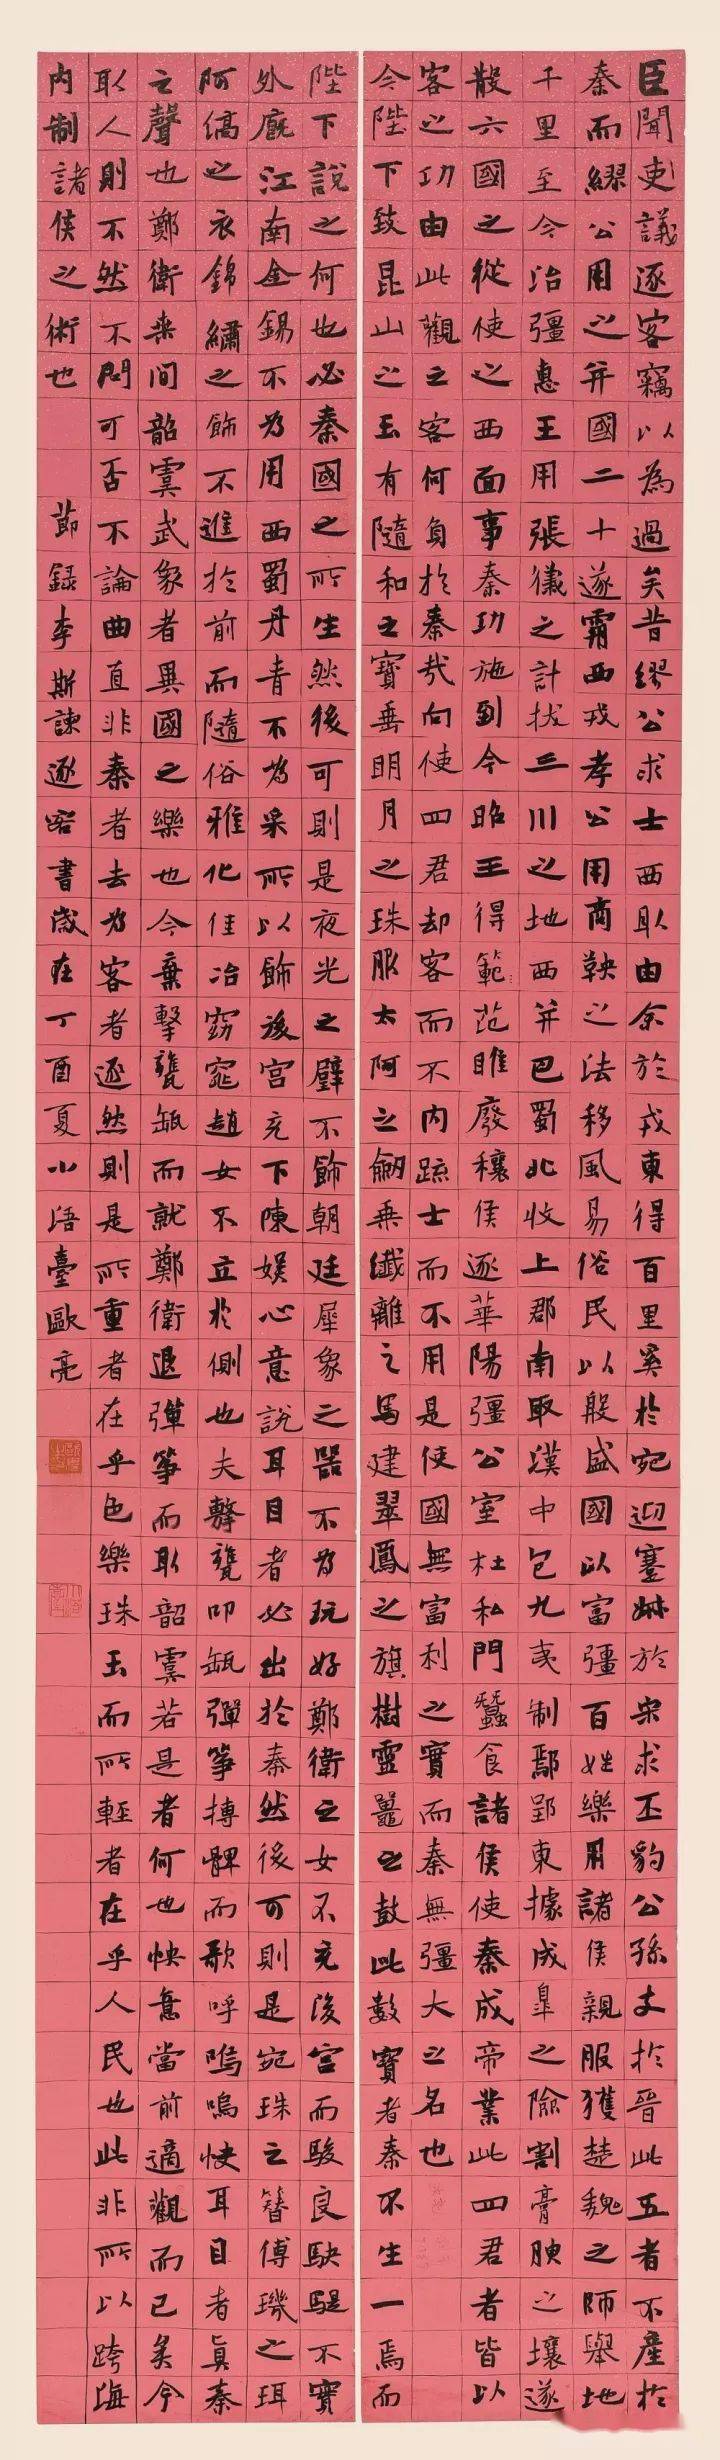 臣聞吏議逐客竊以為過矣昔繆公求士西取由余於戎東得百里奚於宛迎蹇叔於宋求丕豹公孫支於晉此五者不產於
秦而繆公用之并國二十遂霸西戎孝公用商鞅之法移風易俗民以殷盛國以富彊百姓樂用諸侯親服獲楚魏之師舉地
千里至今治彊惠王用張儀之計拔三川之地西并巴蜀北收上郡南取漢中包九夷制鄢郢東據成皋之險割膏腴之壤遂
散六國之從使之西面事秦功施到今昭王得範范雎廢穰侯逐華陽彊公室杜私門蠶食諸侯使秦成帝業此四君者皆以
客之功由此觀之客何負於秦哉向使四君却客而不內疏士而不用是使國無富利之實而秦無彊大之名也
今陛下致昆山之玉有隨和之寶垂明月之珠服太阿之劒乘纖離之馬建翠鳳之旗樹靈鼉之鼓此數寶者秦不生一焉而
陛下說之何也必秦國之所生然後可則是夜光之璧不飾朝廷犀象之器不為玩好鄭衛之女不充後宮而駿良駃騠不實
外廐江南金錫不為用西蜀丹青不為采所以飾後宮充下陳娛心意說耳目者必出於秦然後可則是宛珠之簪傅璣之珥
阿縞之衣錦繡之飾不進於前而隨俗雅化佳冶窈窕趙女不立於側也夫擊甕叩缻彈箏搏髀而歌呼嗚嗚快耳目者真秦
之聲也鄭衛桒間韶虞武象者異國之樂也今棄擊甕缻而就鄭衛退彈箏而取韶虞若是者何也快意當前適觀而已矣今
取人則不然不問可否不論曲直非秦者去為客者逐然則是所重者在乎色樂珠玉而所輕者在乎人民也此非所以跨海
內制諸侯之術也 節錄李斯諫逐客書歲在丁酉夏小浯臺歐亮